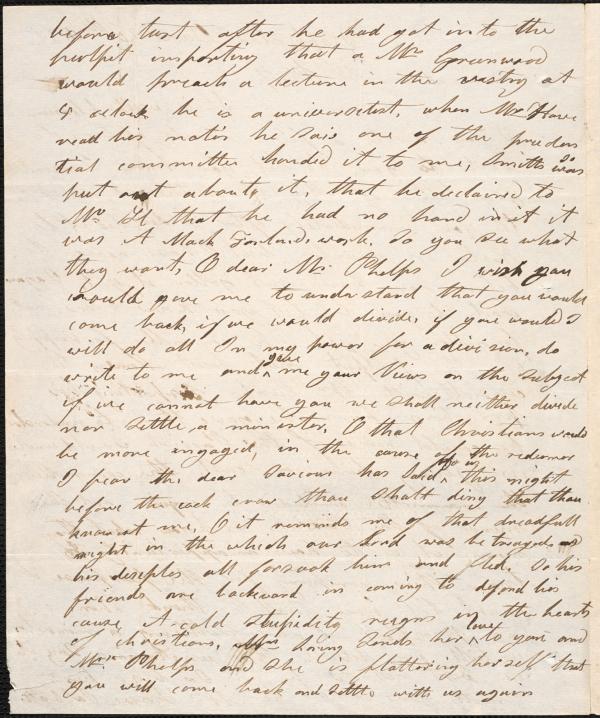 before tust after he had got in to the
pulpit importing that a Mr Greenwood
would preach a lecture in the vestry at
4 oclock he is a universelist, when Mr
read his notis he said one of the pruden
tial committee handed it to me, Smith was so
put out about it, that he declared to
Mr that he had no hand in it it
was A Mack Farlands work. So you see what
they want, O dear Mr Phelps I wish you
would give me to understand that you would
come back, if we would divide, if you would I
will do all In my power for a division, do
write to me and give me your Views on the subject
if we cannot have you we shall neither divide
nor settle a minister, O that Christians would
be more engaged, in the cause of the redeemer
I fear the dear saviour has said to us, this night
before the cock crow thou shalt deny that thou
knowest me, O it reminds me of that dreadfull
night in the which our Lord was betrayed,
his desiples all forsook him and fled. So his
friends are backward in coming to defend his
cause A cold stupidity reigns in the hearts
of christians, Mrs sends her love to you and
Mrs Phelps and she is flattering herself that
you will come back and settle with us again